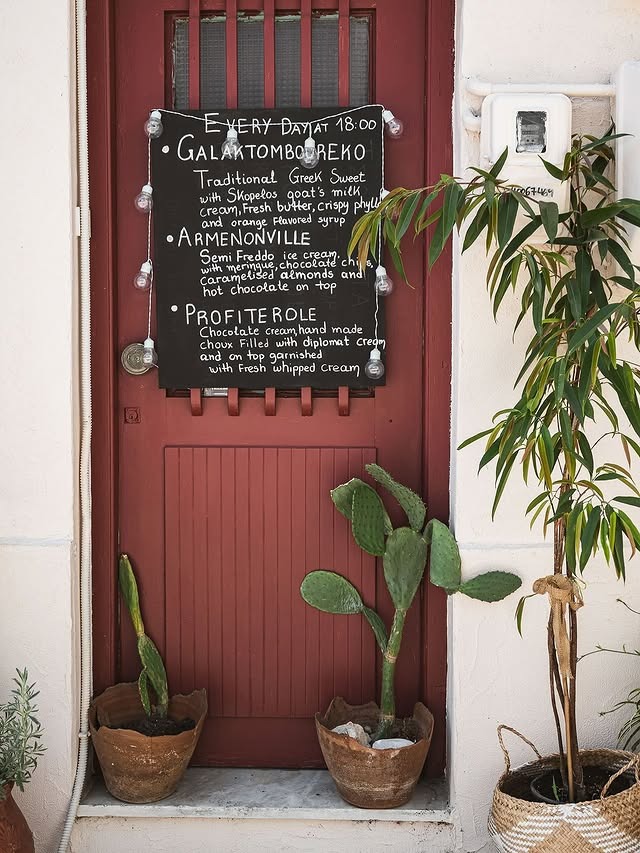 EVERY DAY AT 18:00
• GALAKTOMBOUREKO
Traditional Greek Sweet
with Skopelos goat's milk
cream, Fresh butter, crispy phyllo
and orange flavored syrup
• ARMENONVILLE
Semi Freddo ice cream,
with meringue, chocolate chips,
caramelised almonds and
hot chocolate on top
• PROFITEROLE
Chocolate cream, hand made
choux Filled with diplomat cream
and on top garnished
with Fresh whipped cream